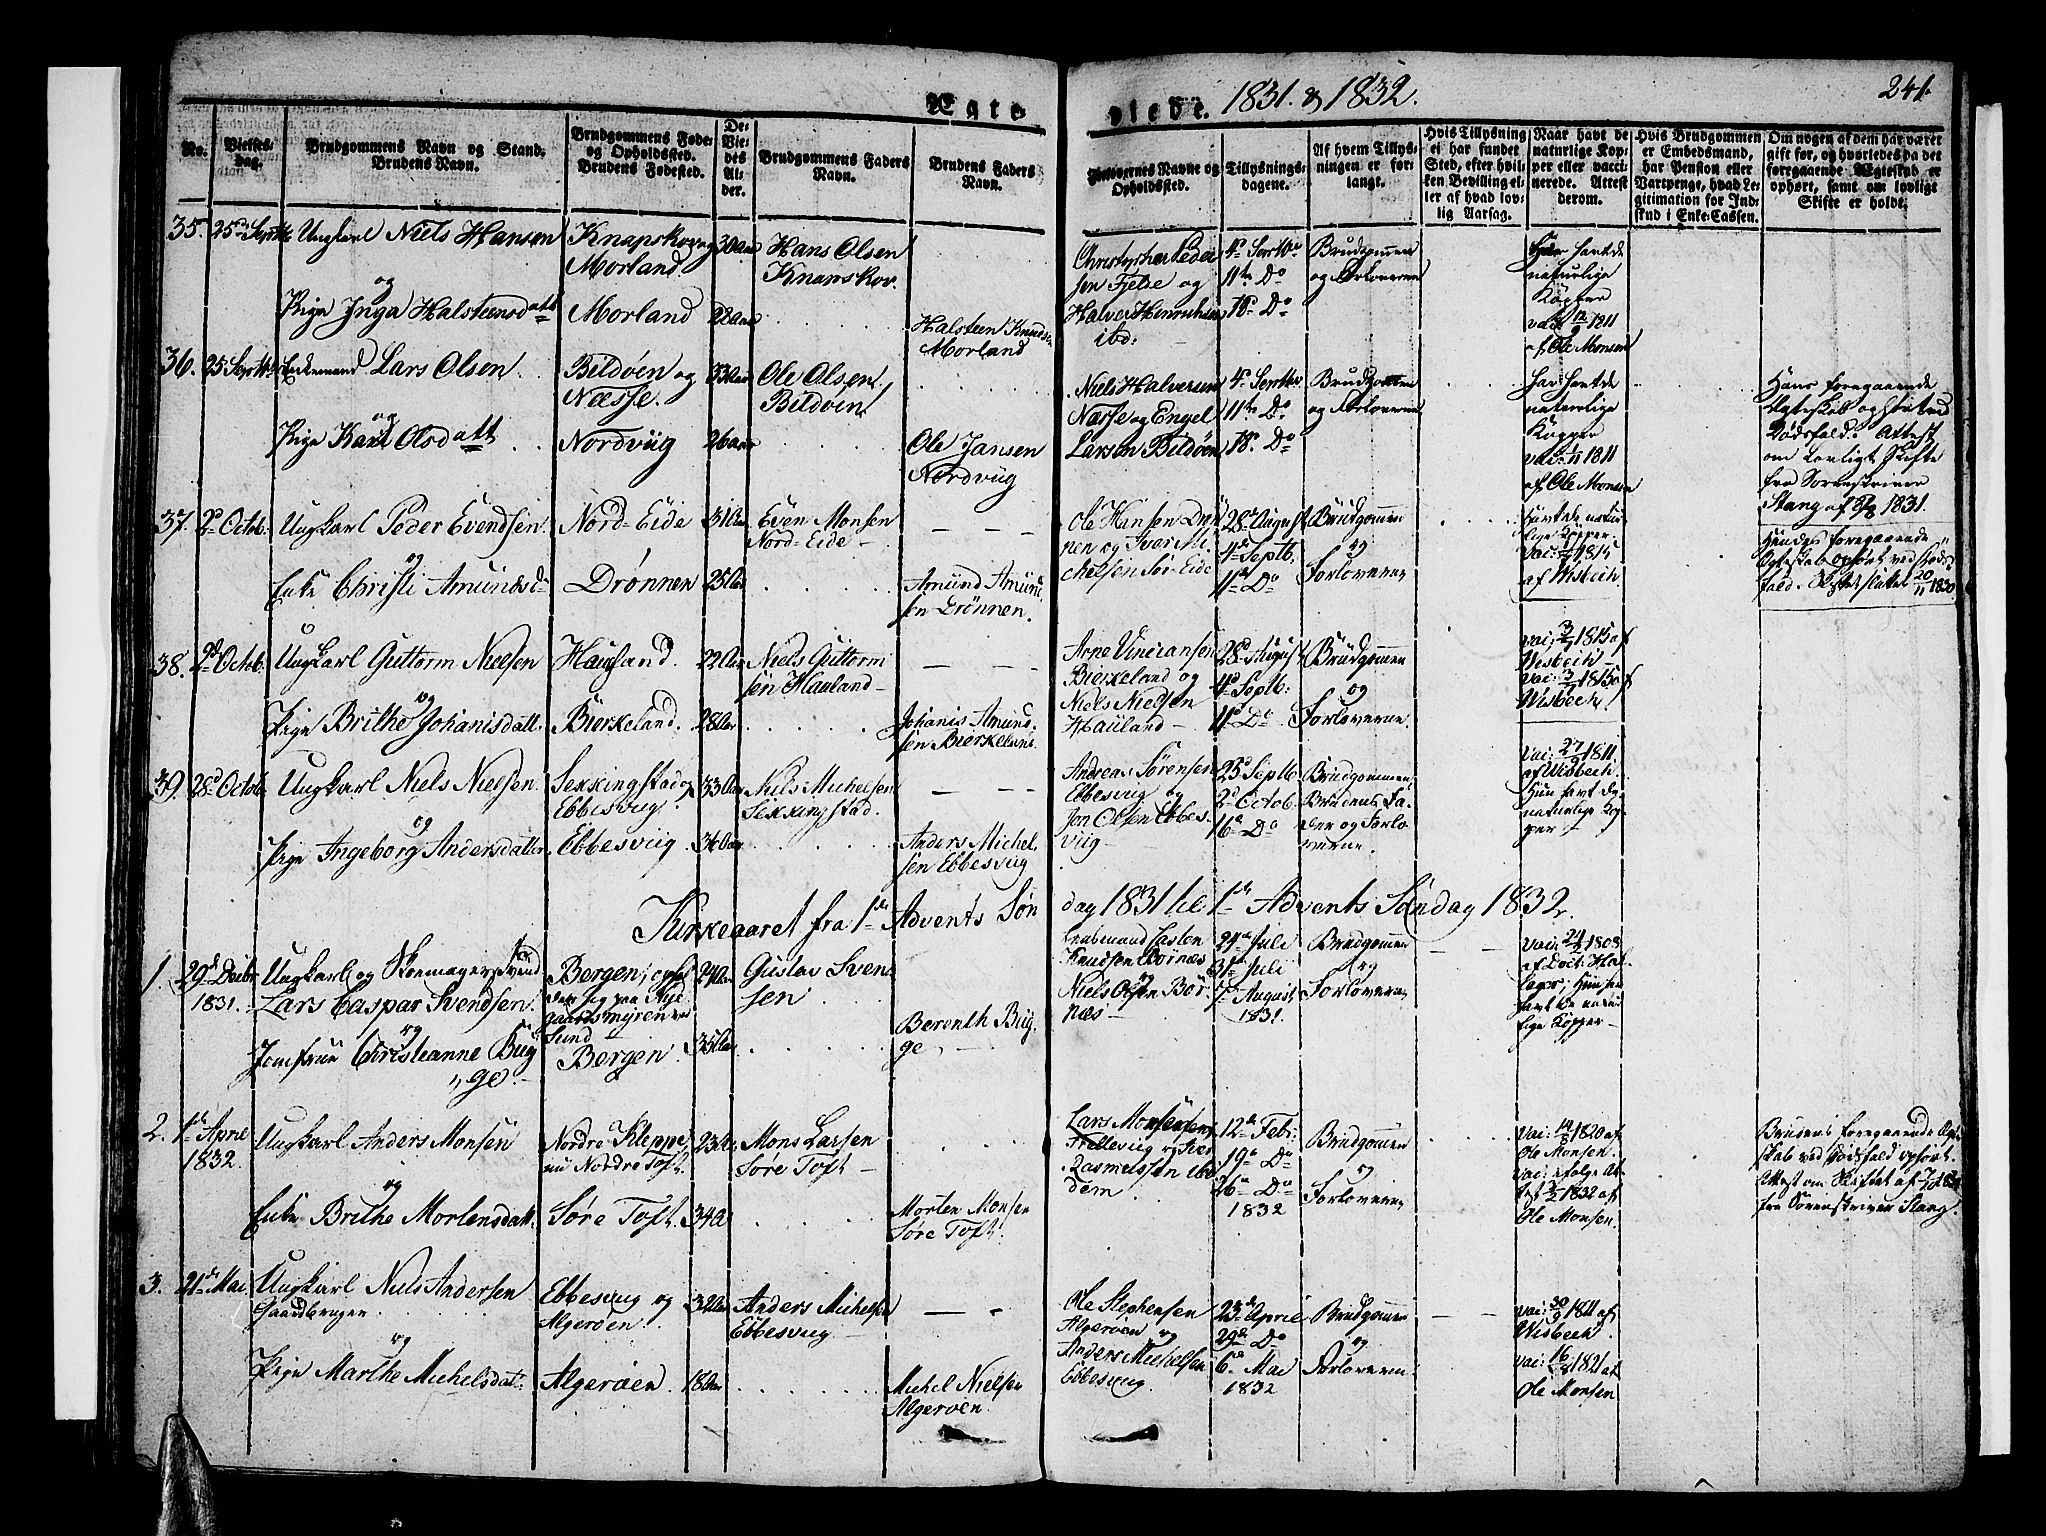 Ægte
viede. 1831. & 1832.
241.
No.
Vielses-
dag.
Brudgommens Navn og Stand.
Brudens Navn.
Brudgommens Føde-
og Opholdssted.
Brudens Fødested.
De
Vie-
des
Al-
der.
Brudgommens Faders
Navn.
Brudens Faders
Navn.
Forlovernes Navne og
Opholdssted.
Tillysnings-
dagene.
Af hvem Tillys-
ningen er for-
langt.
Hvis Tillysning
ei har fundet
Sted, efter hvil-
ken Bevilling el-
ler af hvad lov-
lig Aarsag.
Naar havt de
naturlige Kop-
per eller vacci-
nerede. Attest
derom.
Hvis Brudgommen
er Embedsmand,
har Pension eller
Vartpenge, hvad Le-
gitimation for Ind-
skud i Enke-Cassen.
Om nogen af dem har været
gift før, og hvorledes da det
foregaaende Ægteskab er
ophørt, samt om lovligt
Skifte er holdt.
35. 25 Septbr Ungkarl Niels Hansen
og
Pige Inga Halsteensdatt
Knapskov og
Morland
Morland
30 Aar
22 Aar
Hans Olsen
Knapskov.
Halsteen Knudsen
Morland
Christopher Peder
sen Fjelse og
Halver Henrichsen
ibd:
4de Septbr
11te Do
18de Do
Brudgommen
og Forloverne
Har havde
naturlige
Kopper
vac: 12/9 1811
af Ole Monsen
36. 25 Septbr Enkemand Lars Olsen
og
Pige Kari Olsdatt
Bildøen og
Næsse.
Nordviig
33 Aar
26 Aar
Ole Olsen
Bildøen
Ole Jansen
Nordviig
Niels Halversen
Næsse og Engel
Larsen Bildøen
4de Septbr
11te Do
18de Do
Brudgommen
og Forloverne
har havde
naturlige
Kopper
1811
af Ole Monsen
Hans foregaaende
Ægteskab ophørt ved
Dødsfald. Attest
om Lovligt Skifte
fra Sorenskriver
Stang af 1831.
37. 2d Octob. Ungkarl Peder Evendsen
og
Enke Christi Amundsd
Nord-Eide
Drønnen
31 Aar
25 Aar
Even Monsen
Nord-Eide
Amund Amund
sen Drønnen.
Ole Hansen Drøn
nen og Iver Mi
chelsen Sør-Eide
28de August
4de Septb.
11te Do
Brudgommen
og
Forloverne
havt de natur
lige Kopper.
1815
af Wisbech
Hendes foregaaende
Ægteskab ophørt ved Døds
fald. Skiftet sluttet 20/11 1830.
38. 2d Octob. Ungkarl Guttorm Nielsen
og
Pige Brithe Johanisdatt.
Hauland.
Bierkeland.
22 Aar
28 Aar
Niels Guttorm
sen Hauland
Johanis Amund
sen Bierkeland.
Arne Vincentsen
Bierkeland og
Niels Nielsen
Hauland
28de August
4de Septb:
11te Do
Brudgommen
og
Forloverne.
1815 af
Wisbech
1815 af
Wisbech
39. 28d Octob Ungkarl Niels Nielsen
og
Pige Ingeborg Andersdatter
Sekkingstad og
Ebbesviig
Ebbesviig.
33 Aar
36 Aar
Niels Michelsen
Sekkingstad.
Anders Michel
sen Ebbesviig
Andreas Sørensen
Ebbesviig og
Jon Olsen Ebbes
viig
25de Septb.
2d Octob.
16de Do
Brudgommen,
Brudens Fa-
der og Forlo
verne.
vac: 27/9 1811
af Wisbech.
Hun havt de
naturlige Kop
per
Kirkeaaret fra 1de Advents Søn
dag 1831 til 1de Advents Søndag 1832.
1. 29de Decbr
1831.
Ungkarl og Skomagersvend
Lars Caspar Svendsen
og
Jomfrue Christianne Büg
ge.
Bergen, ophol
der sig paa Nye
gaardsmyren ved
Sund
Bergen
24 Aar
35 Aar
Gustav Sven
sen
Berenth Büg
ge
Lensmand Casten
Knudsen Børnæs
og
Niels Olsen Bør
næs
24de Juli
31te Juli
7de August
1831.
Brudgommen
og
Forloverne
vac: 24/2 1808
af Doct:
Hun har
havt de natur
lige Kopper
2. 1de April
1832.
Ungkarl Anders Monsen
og
Enke Brithe Mortensdatt.
Nordre Kleppe
nu Nordre Toft.
Søre Toft.
23 Aar
34 A
Mons Larsen
Søre Toft
Morten Monsen
Søre Toft.
Lars Monsen
Trellevig og Peer
Rasmussen ibi
dem
12de Febr:
19de Do
26de Do
1832
Brudgommen
og
Forloverne
vac: 14/8 1820 af
Ole Monsen.
vac: efter At
test 1832 af
Ole Monsen.
Brudens foregaaende Ægte
skab ved Dødsfald ophørt.
Attest om Skiftet af
fra Sorenskriver Stang.
3. 21de Mai Ungkarl Niels Andersen
Gaardbruger
og
Pige Marthe Michelsdat.
Ebbesviig og
Algerøen.
Algerøen
32 Aar
18 Aar
Anders Michelsen
Ebbesviig
Michel Nielsen
Algerøen.
Ole Stephensen
Algerøen og
Anders Michelsen
Ebbesviig.
23de April
29de Do
6te Mai
1832
Brudgommen
og
Forloverne
vac: 30/9 1811 af
Wisbech.
vac: 16/8 1821 af
Ole Monsen